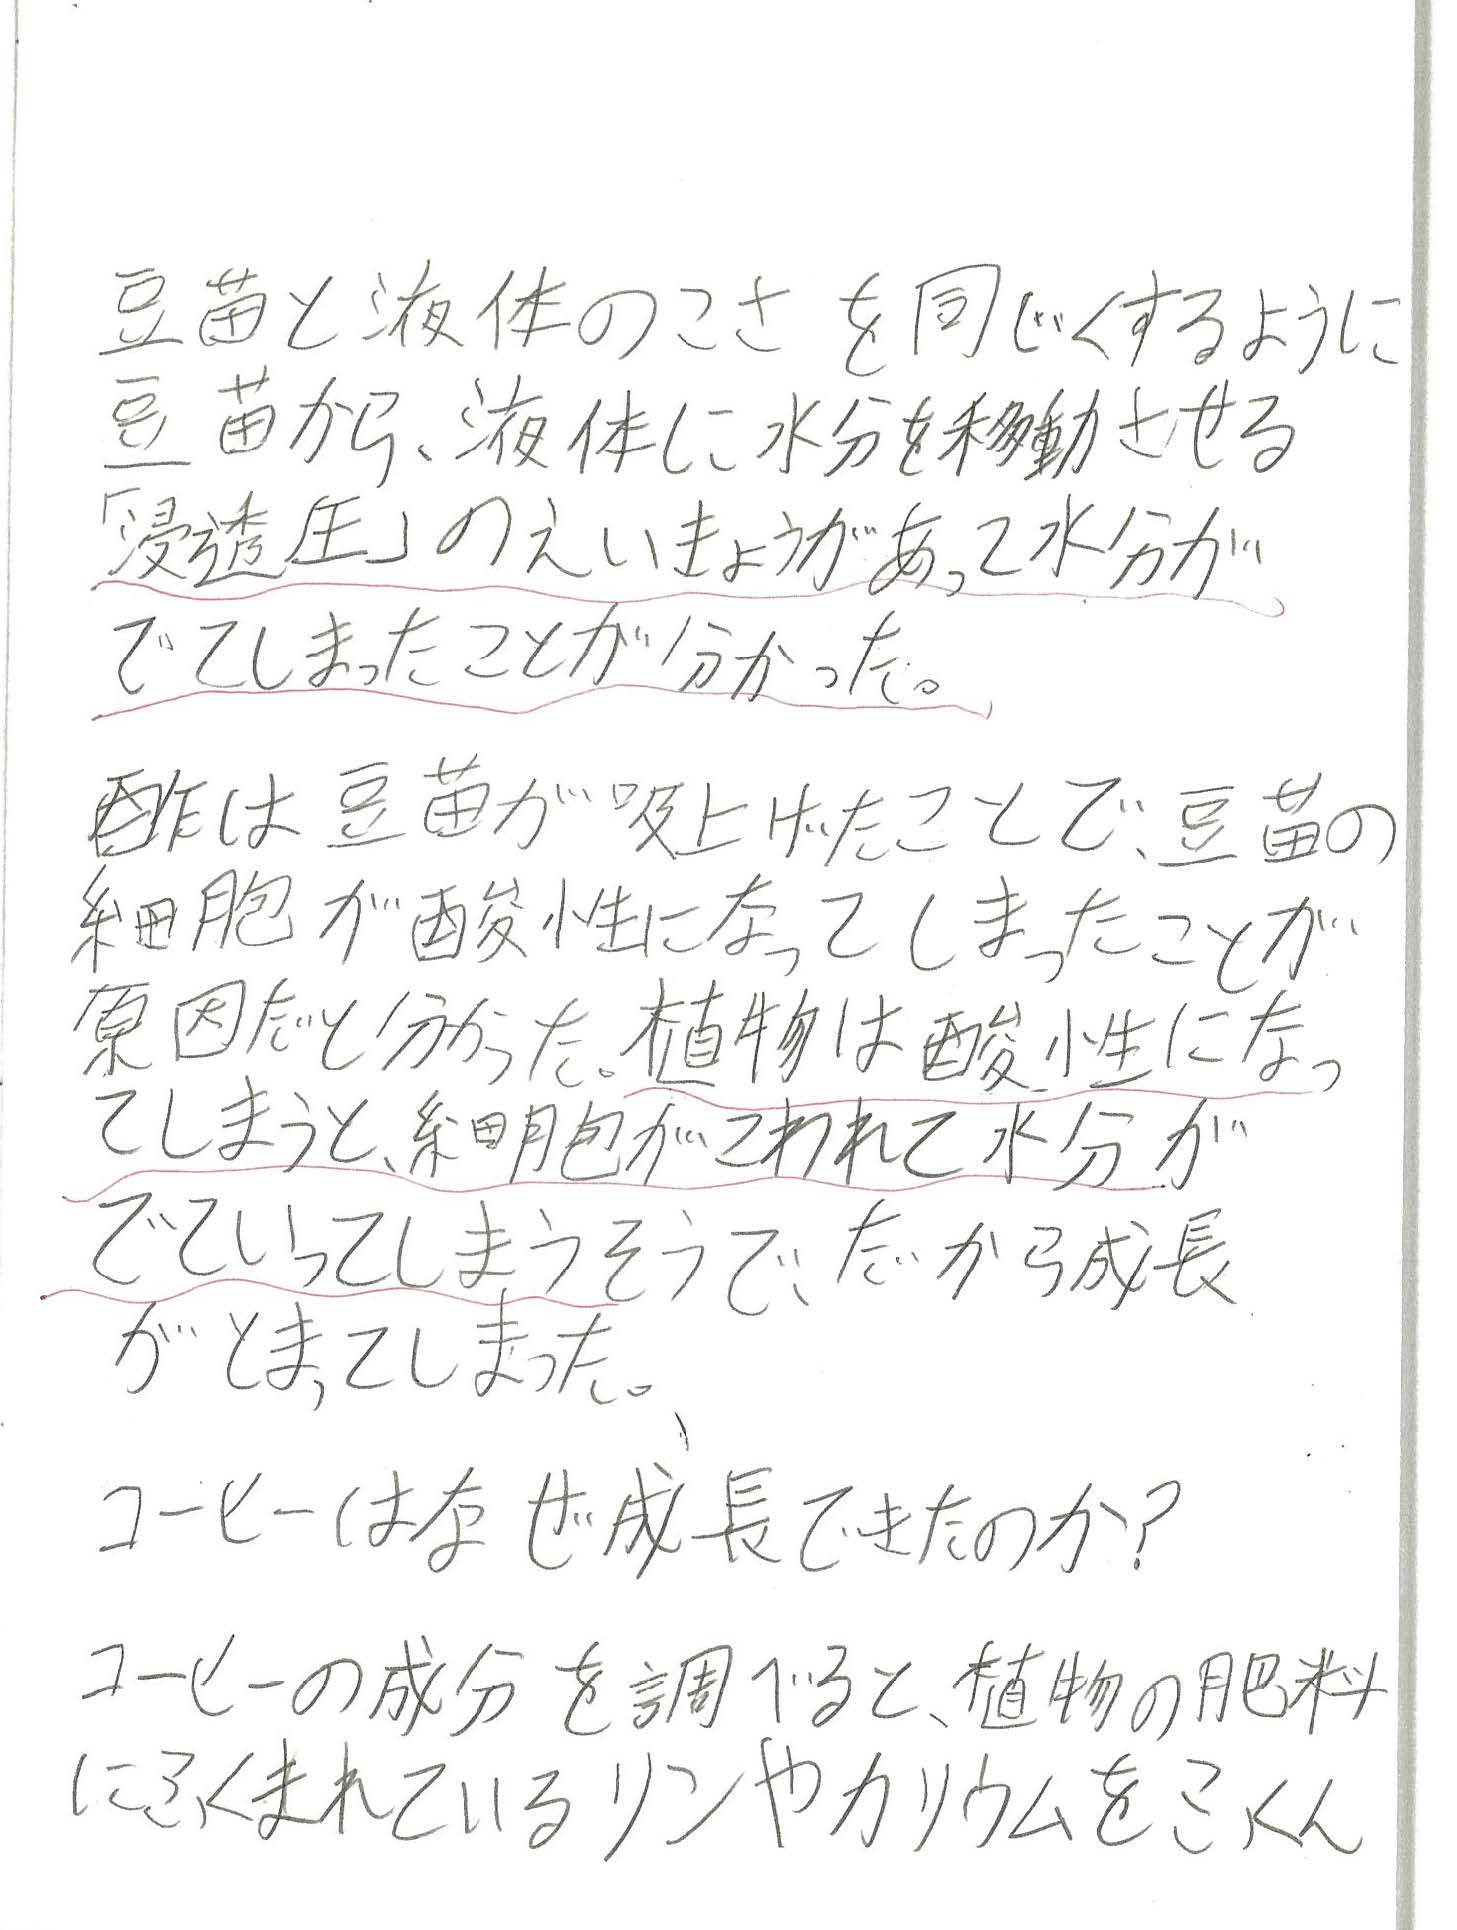 豆苗と液体のこさを同じくするように
豆苗から、液体に水分を移動させる
「浸透圧」のえいきょうがあって水分が
でてしまったことが分かった。
酢は豆苗が吸上げたことで、豆苗の
細胞が酸性になってしまったことが
原因だと分かった。植物は酸性になっ
てしまうと、細胞がこわれて水分が
でていってしまうそうで、だから成長
がとまってしまった。
コーヒーはなぜ成長できたのか?
コーヒーの成分を調べると、植物の肥料
にふくまれているリンやカリウムをふくん